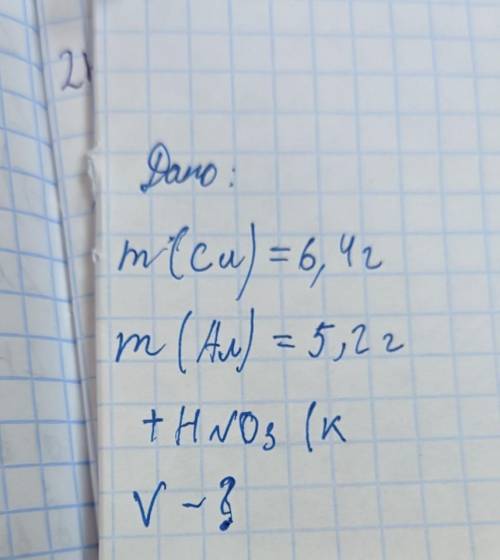 21
Дано:
m(Cu) = 6,4г
m(Ал) = 5,2г
+ HNO₃ (к
V - ?